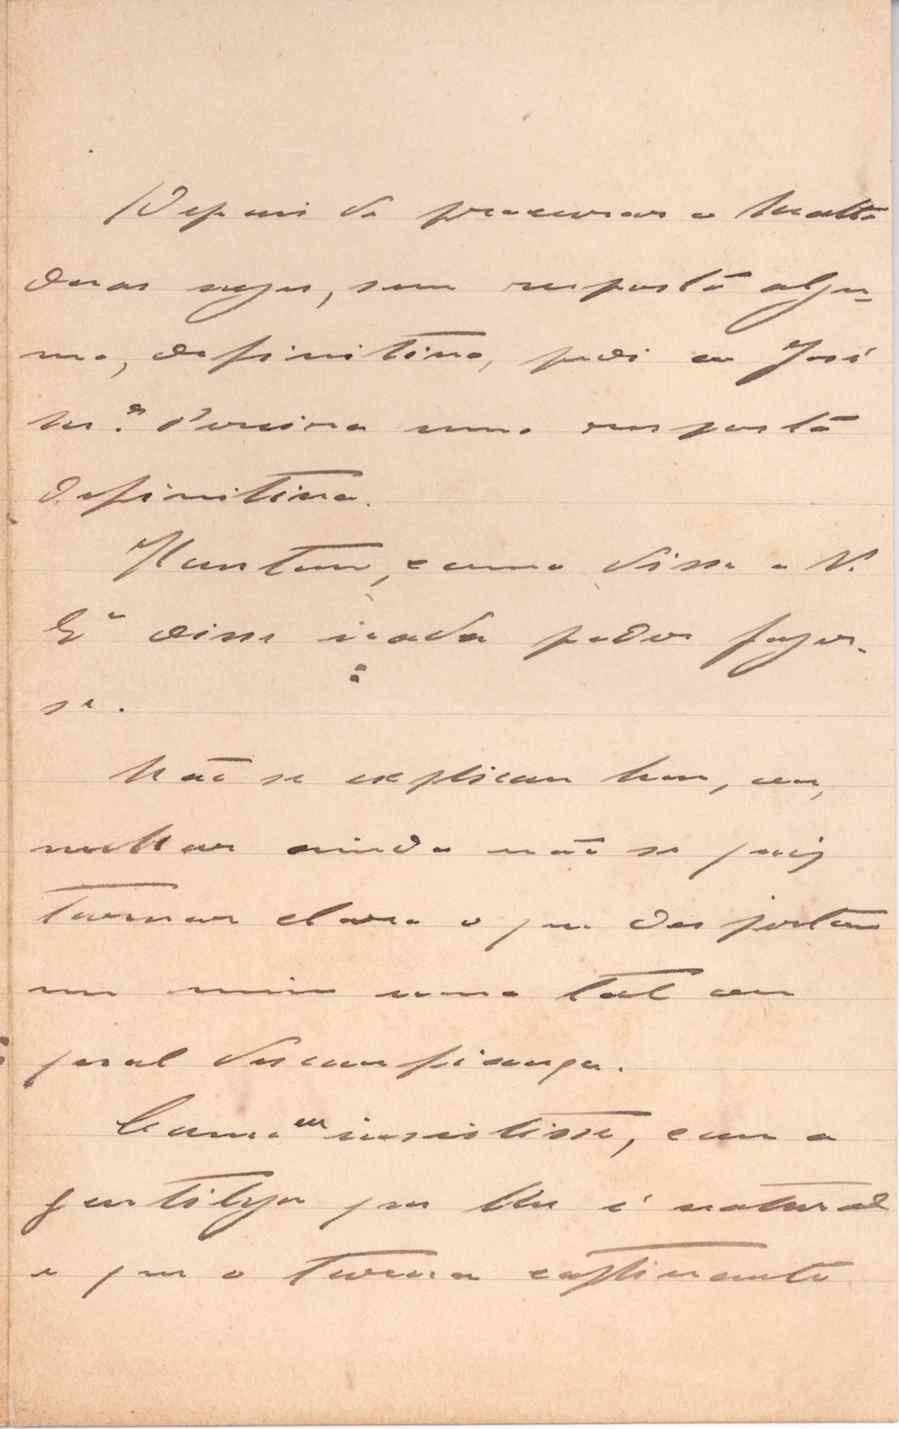 Depois de procurar o Motta
duas vezes, sem resposta algu-
ma, definitiva, pedi ao José
M.ª Pereira uma resposta
definitiva.
Hontem, como disse a V.
Exª disse nada poder fazer-
se.
Não se explicam bem, ou,
melhor ainda não se quiz
tornar claro o que despertou
em mim uma tal ou
qual desconfiança.
Como eu insistisse, com a
gentileza que lhe é natural
e que o torna captivante